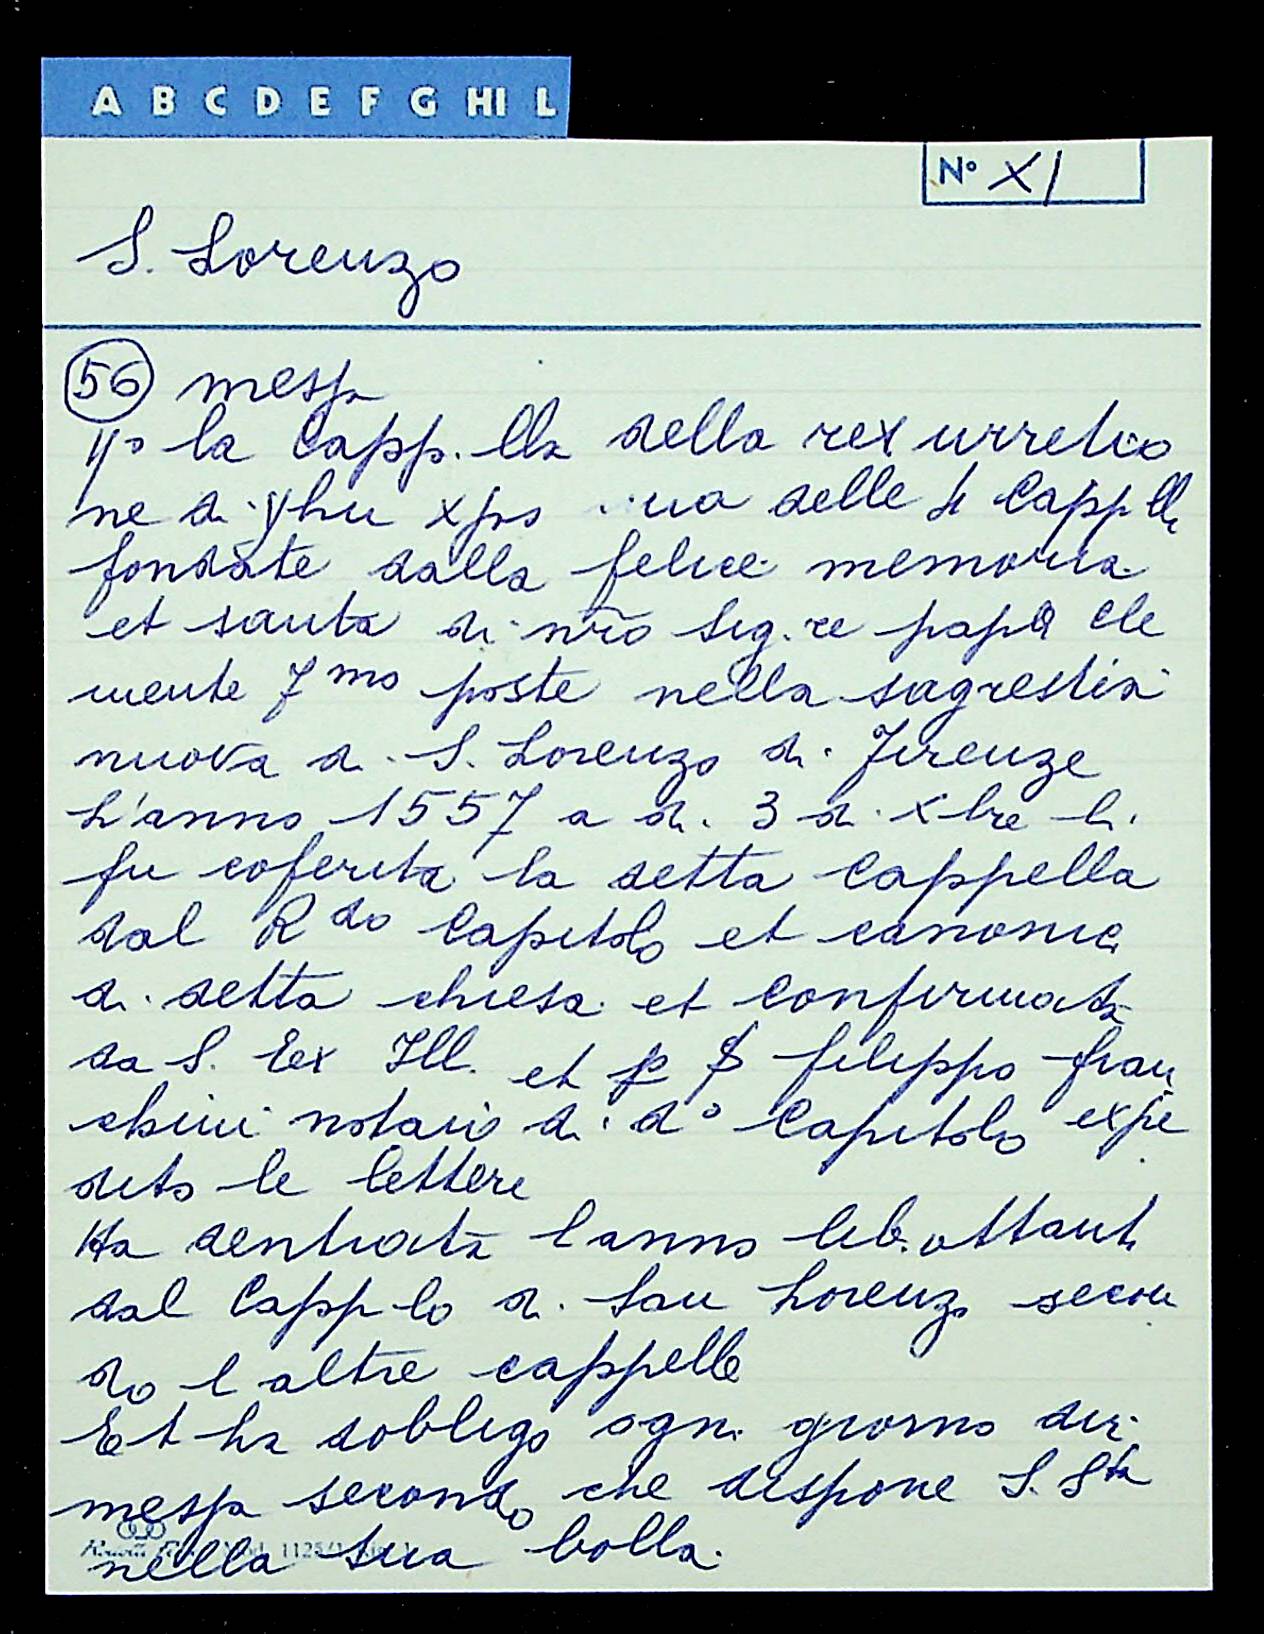 A B C D E F G HI L
N° XI
S. Lorenzo
56 messa
la Capp.lla della rexurretio
ne di yhu xpo una delle 4 Capp.lle
fondate dalla felice memoria
et santa di nr̃o Sig.re papa Cle
mente 7mo poste nella sagrestia
nuova di S. Lorenzo di Firenze
L'anno 1557 a di 3 di xbre li
fu coferita la detta Cappella
dal Rdo Capitolo et canonici
di detta chiesa et confirmata
da S. Ecc Ill. et p filippo fran
chini notaio di d° Capitolo expe
dito le lettere
Ha dentrata l anno lib. ottanta
dal Capp lo di San Lorenzo secon
do l altre cappelle
Et ha dobligo ogni giorno dir
messa secondo che dispone S. Sta
nella sua bolla.